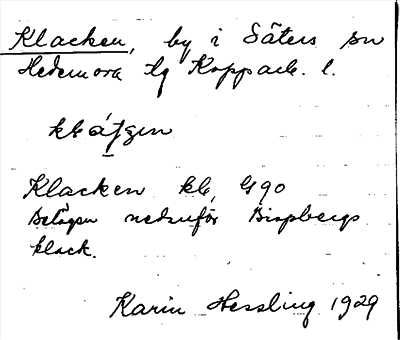 Klacken, by i Säters sn
Hedemora tg Kopparb. l.
Klacken kb, G90
Belägen nedanför Bispbergs
klack.
Karin Hessling 1929